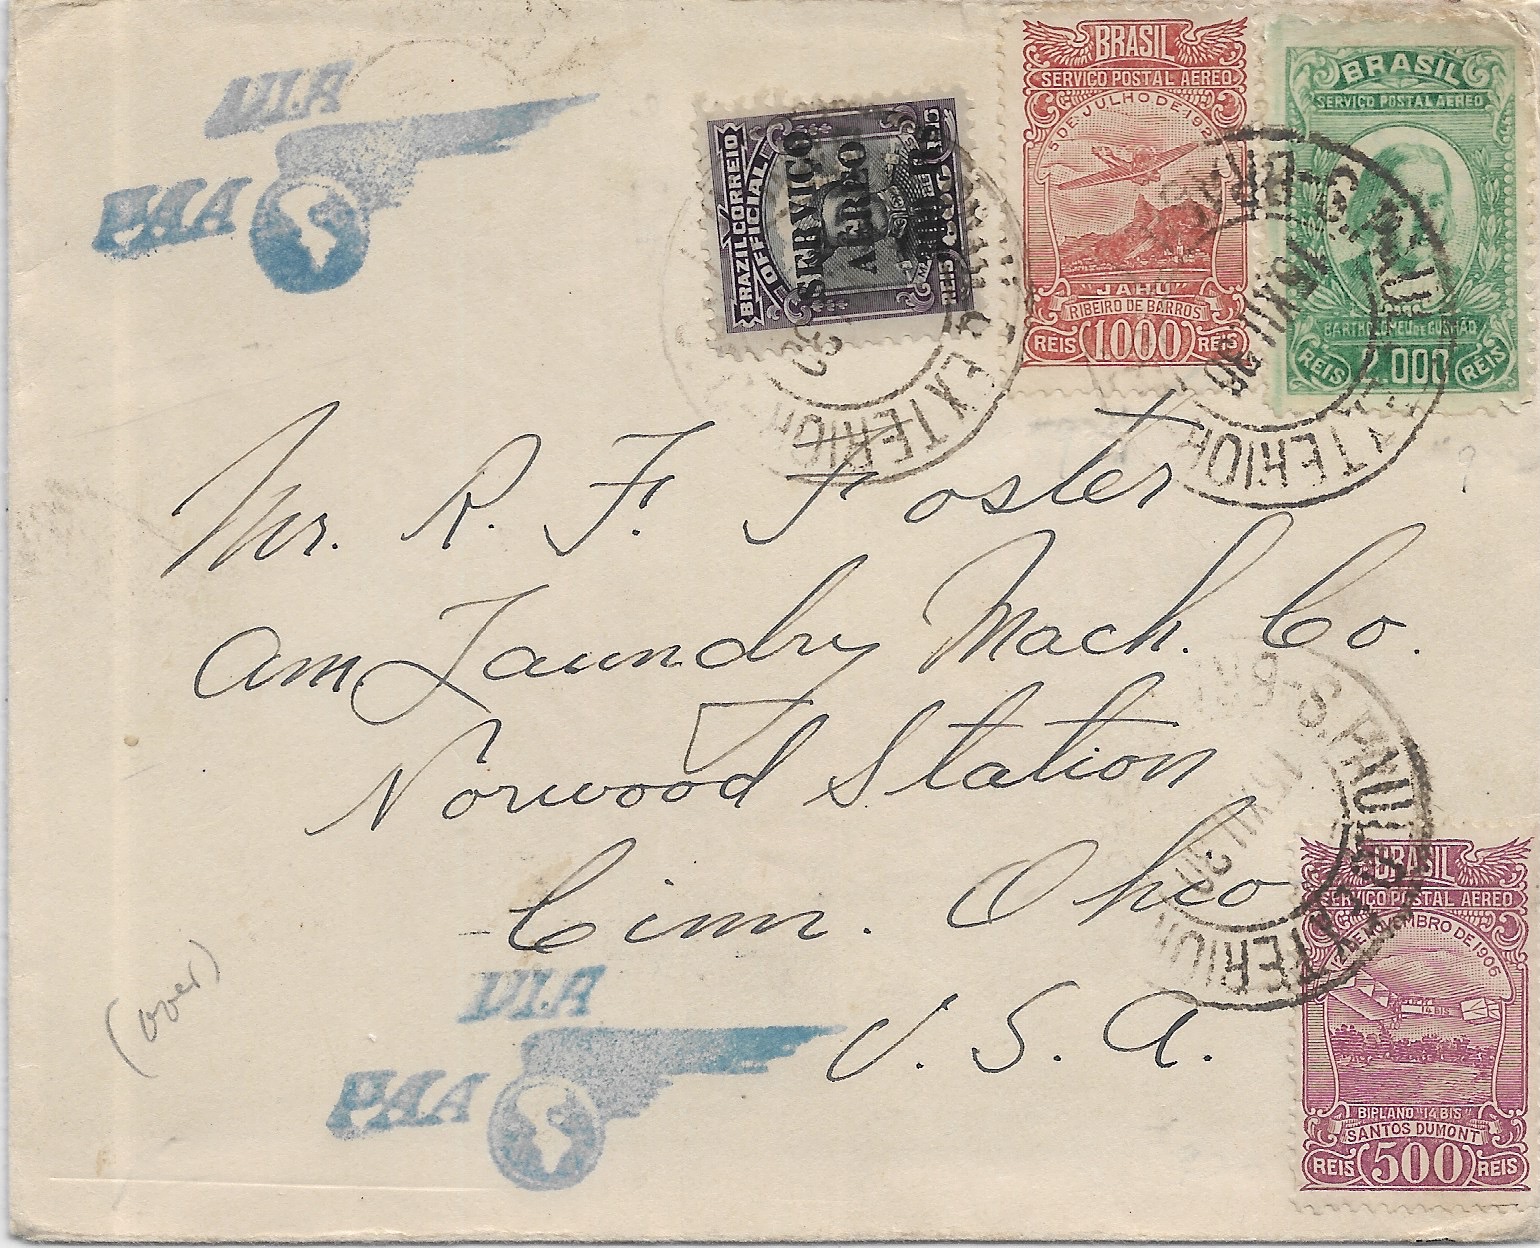 VIA
PAA
BRAZIL CORREIO
OFFICIAL
SERVIÇO
AEREO
REIS
BRASIL
SERVIÇO POSTAL AEREO
5 DE JULHO DE 192
"JAHÚ"
RIBEIRO DE BARROS
REIS 1.000 REIS
BRASIL
SERVIÇO POSTAL AEREO
BARTHOLOMEU DE GUSMÃO
REIS 2.000 REIS
EXTERIOR
S. PAULO
15 XII 30
EXTERIOR
Mr. R. F. Foster
Am Laundry Mach. Co.
Norwood Station
Cinn. Ohio
U. S. A.
(over)
VIA
PAA
S. PAULO
15 XII 30
EXTERIOR
BRASIL
SERVIÇO POSTAL AEREO
DE 1906
14 BIS
BIPLANO "14 BIS"
SANTOS DUMONT
REIS 500 REIS